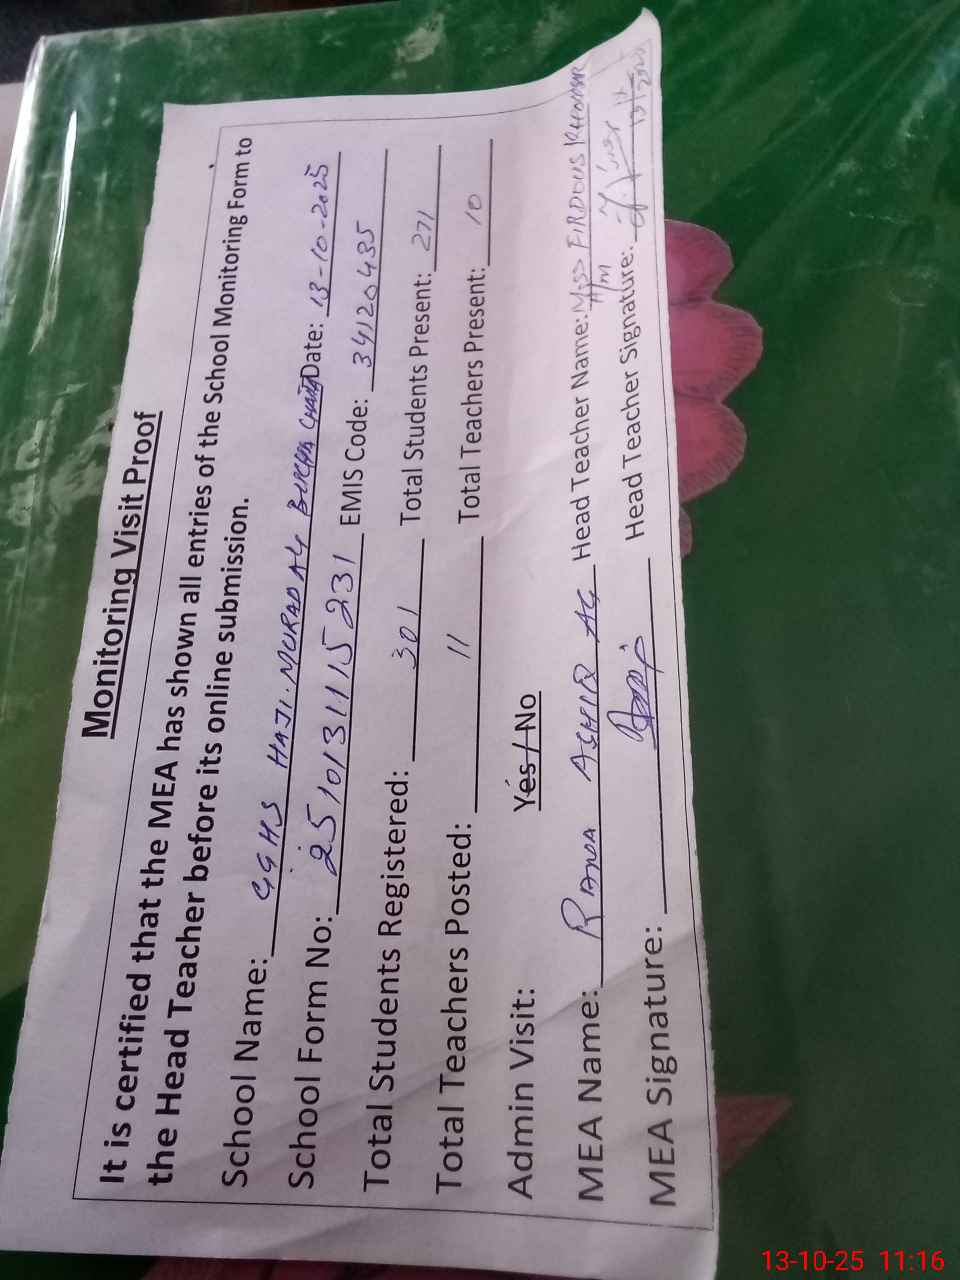 Monitoring Visit Proof
It is certified that the MEA has shown all entries of the School Monitoring Form to
the Head Teacher before its online submission.
School Name: GGHS HAJI. MURAD ALI BUCHA CHANG Date: 13-10-2025
School Form No: 2510131115231 EMIS Code: 34120435
Total Students Registered: 301 Total Students Present: 271
Total Teachers Posted: 11 Total Teachers Present: 10
Admin Visit: Yes / No
MEA Name: RANA ASHIQ Head Teacher Name: Miss FIRDOUS
HM
MEA Signature: Head Teacher Signature:
13-10-25 11:16